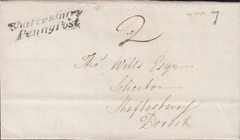 Shaftesbury
Penny Post
2
7
Thos. Wills Esqr
Shaftesbury
Dorset